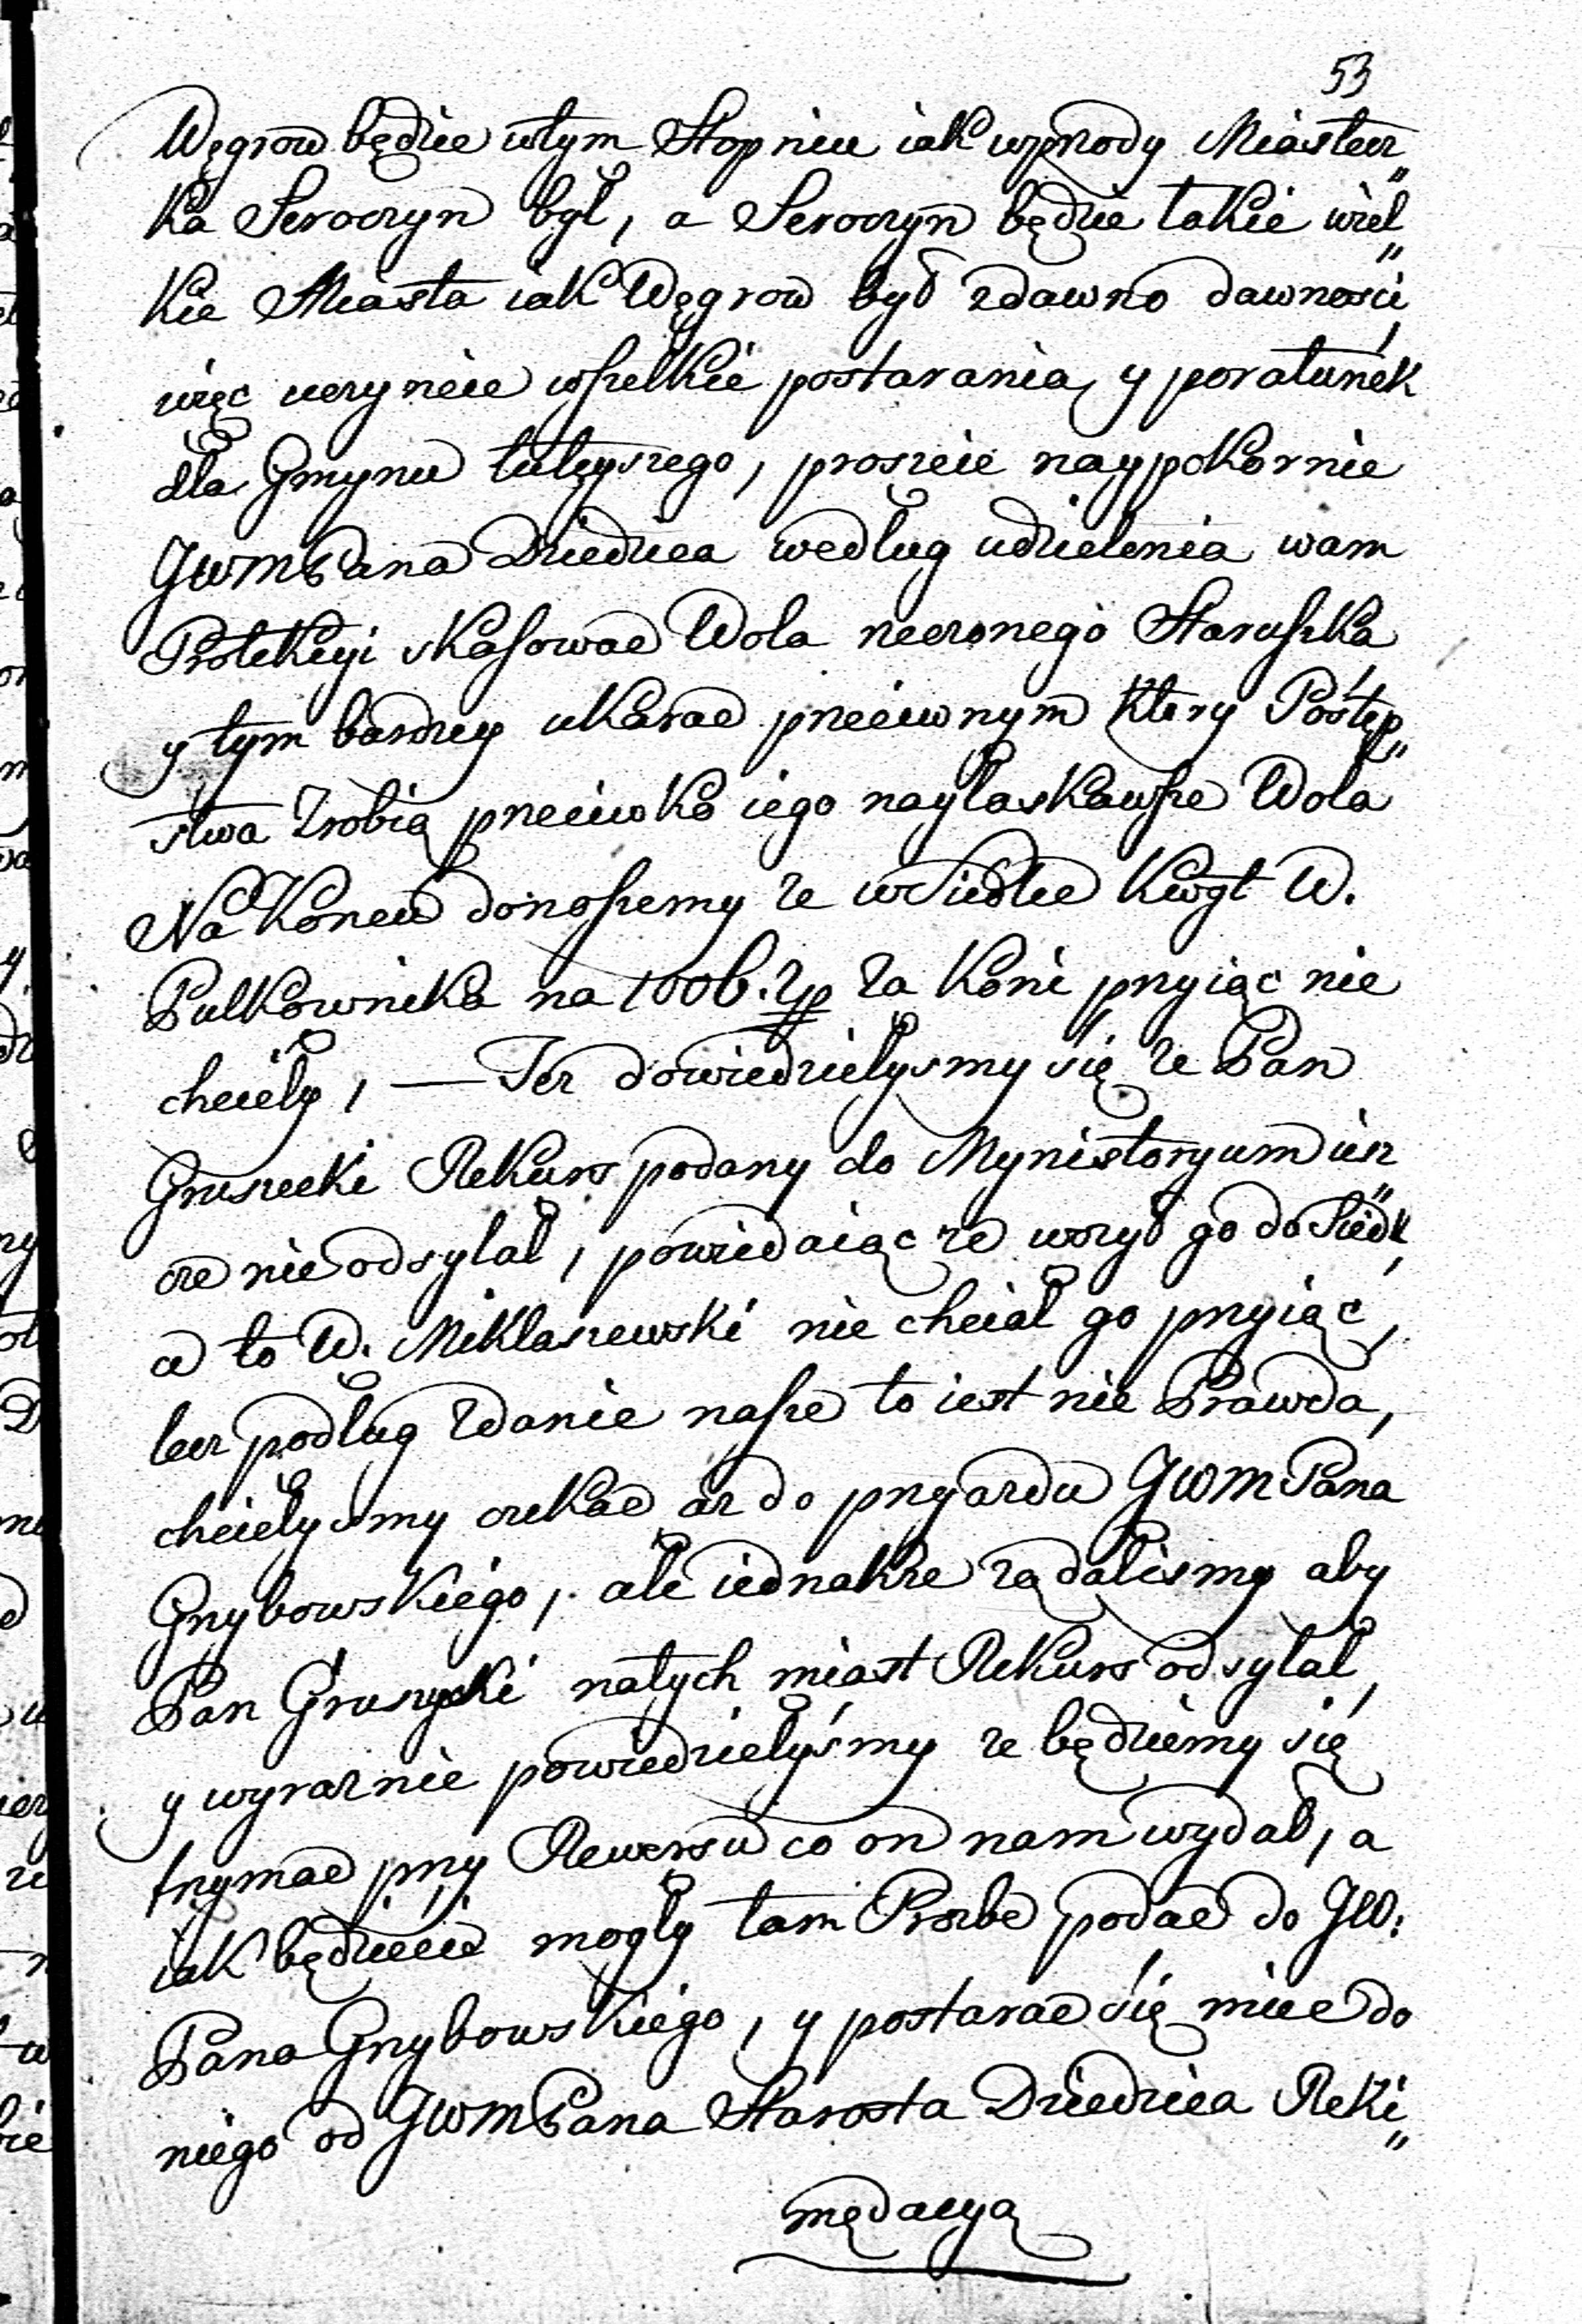 53
Węgrow będzie wtym Stopniu iak wprzody Miastecz„
ka Seroczyn był, a Seroczyn będzie takie wiel„
kie Miasta iak Węgrow był zdawno dawności,
więc uczyncie wszelkie postarania, y poratunek
dla Gmynu tuteyszego, proszcie naypokornie
JWMPana Dziedzica według udzielenia wam
Protekcyi skasować Wola uczonego Staruszka
y tym bardzey ukarać przeciwnym ktory Postęp„
stwa Zrobią przeciwko iego naylaskawsze Wola
Na Koncu donoszemy ze w Siedlce Kwyt W.
Pulkownika na 1006. Zp za Koni przyiąc nie
chciely, — Tez dowiedzielysmy się ze Pan
Gruszecki Rekurs podany do Mynistoryum iesz„
cze nie odsylał, powiedaiąc ze wozył go do Siedl,
a to W. Miklaszewski nie chciał go przyiąc,
lecz podług Zdanie nasze to iest nie Prawda,
chcielysmy czekać az do przyazdu JWMPana
Grzybowskiego, ale iednakze ządalismy aby
Pan Gruszycki natych miast Rekurs odsylał,
y wyraznie powiedzielyśmy ze będziemy się
trzymać przy Rewersu co on nam wydał, a
iak będziecie mogly tam Prozbe podać do JW:
Pana Grzybowskiego, y postarać się miec do
niego od JWMPana Starosta Dziedzica Reki„
mędacyą